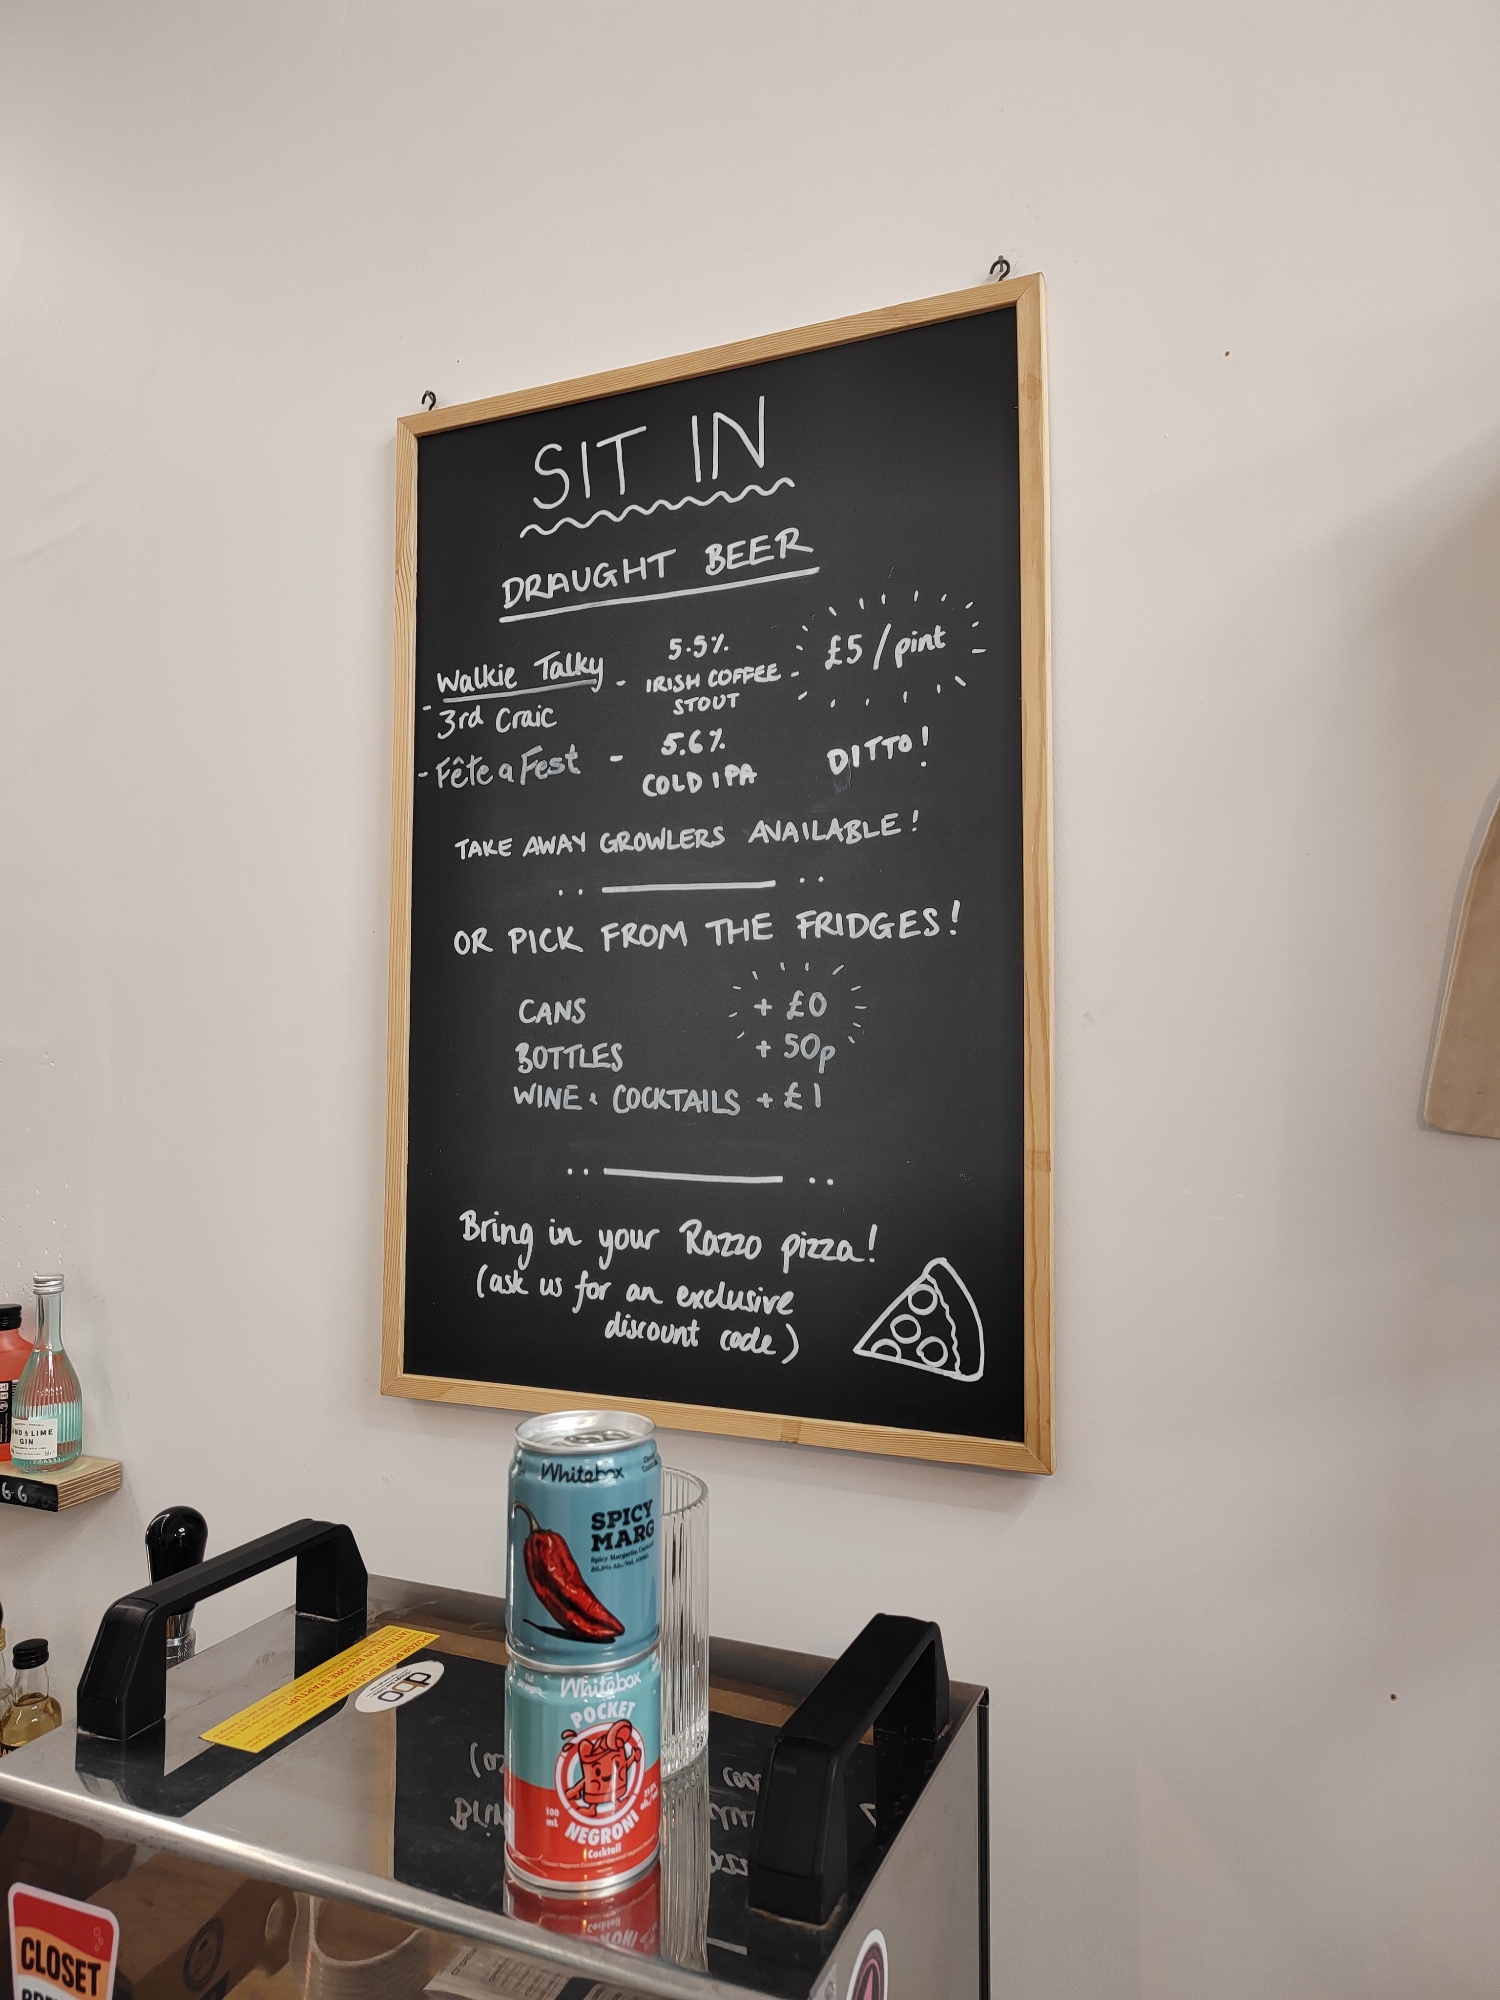 SIT IN
DRAUGHT BEER
- Walkie Talky - 5.5% IRISH COFFEE STOUT - £5/pint
3rd Craic
- Fête a Fest - 5.6% COLD IPA DITTO!
TAKE AWAY GROWLERS AVAILABLE!
OR PICK FROM THE FRIDGES!
CANS + £0
BOTTLES + 50p
WINE & COCKTAILS + £1
Bring in your Razzo pizza!
(ask us for an exclusive
discount code)
LIME
GIN
Whitebox
SPICY
MARG
Spicy Margarita
Whitebox
POCKET
NEGRONI
100
ml
Cocktail
POZOR PŘED SPUŠTĚNÍM!
ATTENTION BEFORE STARTUP!
dbo
CLOSET